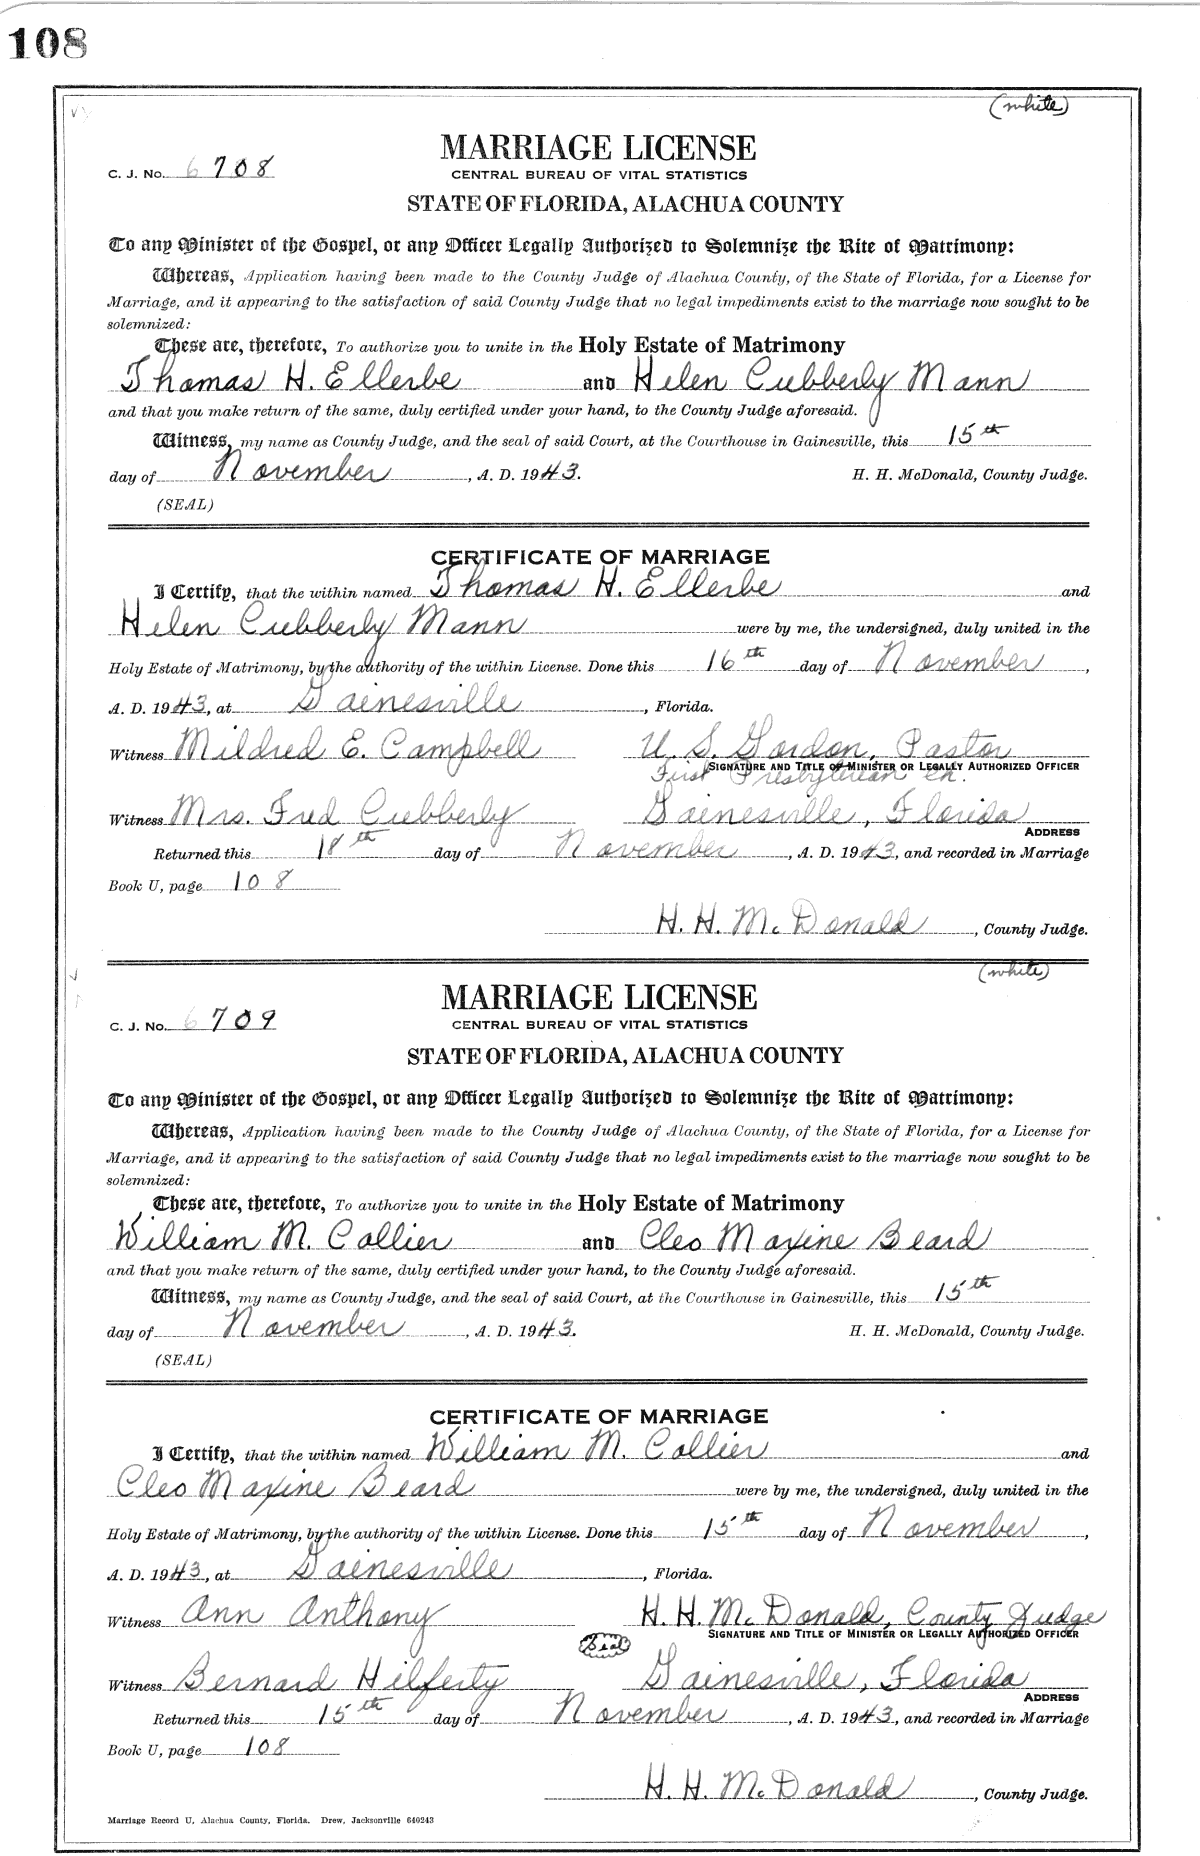 108
(white)
MARRIAGE LICENSE
C. J. No. 6708
CENTRAL BUREAU OF VITAL STATISTICS
STATE OF FLORIDA, ALACHUA COUNTY
To any Minister of the Gospel, or any Officer Legally Authorized to Solemnize the Rite of Matrimony:
Whereas, Application having been made to the County Judge of Alachua County, of the State of Florida, for a License for
Marriage, and it appearing to the satisfaction of said County Judge that no legal impediments exist to the marriage now sought to be
solemnized:
These are, therefore, To authorize you to unite in the Holy Estate of Matrimony
Thomas H. Ellerbe and Helen Cubberly Mann
and that you make return of the same, duly certified under your hand, to the County Judge aforesaid.
Witness, my name as County Judge, and the seal of said Court, at the Courthouse in Gainesville, this 15th
day of November, A. D. 1943. H. H. McDonald, County Judge.
(SEAL)
CERTIFICATE OF MARRIAGE
I Certify, that the within named Thomas H. Ellerbe and
Helen Cubberly Mann were by me, the undersigned, duly united in the
Holy Estate of Matrimony, by the authority of the within License. Done this 16th day of November,
A. D. 1943, at Gainesville, Florida.
Witness Mildred E. Campbell U. S. Gordon, Pastor
SIGNATURE AND TITLE OF MINISTER OR LEGALLY AUTHORIZED OFFICER
First Presbyterian Ch.
Witness Mrs. Fred Cubberly Gainesville, Florida
ADDRESS
Returned this 18th day of November, A. D. 1943, and recorded in Marriage
Book U, page 108
H. H. McDonald, County Judge.
(white)
MARRIAGE LICENSE
C. J. No. 6709
CENTRAL BUREAU OF VITAL STATISTICS
STATE OF FLORIDA, ALACHUA COUNTY
To any Minister of the Gospel, or any Officer Legally Authorized to Solemnize the Rite of Matrimony:
Whereas, Application having been made to the County Judge of Alachua County, of the State of Florida, for a License for
Marriage, and it appearing to the satisfaction of said County Judge that no legal impediments exist to the marriage now sought to be
solemnized:
These are, therefore, To authorize you to unite in the Holy Estate of Matrimony
William M. Collier and Cleo Maxine Beard
and that you make return of the same, duly certified under your hand, to the County Judge aforesaid.
Witness, my name as County Judge, and the seal of said Court, at the Courthouse in Gainesville, this 15th
day of November, A. D. 1943. H. H. McDonald, County Judge.
(SEAL)
CERTIFICATE OF MARRIAGE
I Certify, that the within named William M. Collier and
Cleo Maxine Beard were by me, the undersigned, duly united in the
Holy Estate of Matrimony, by the authority of the within License. Done this 15th day of November,
A. D. 1943, at Gainesville, Florida.
Witness Ann Anthony H. H. McDonald, County Judge
SIGNATURE AND TITLE OF MINISTER OR LEGALLY AUTHORIZED OFFICER
Seal
Witness Bernard Hilferty Gainesville, Florida
ADDRESS
Returned this 15th day of November, A. D. 1943, and recorded in Marriage
Book U, page 108
H. H. McDonald, County Judge.
Marriage Record U, Alachua County, Florida. Drew, Jacksonville 640243